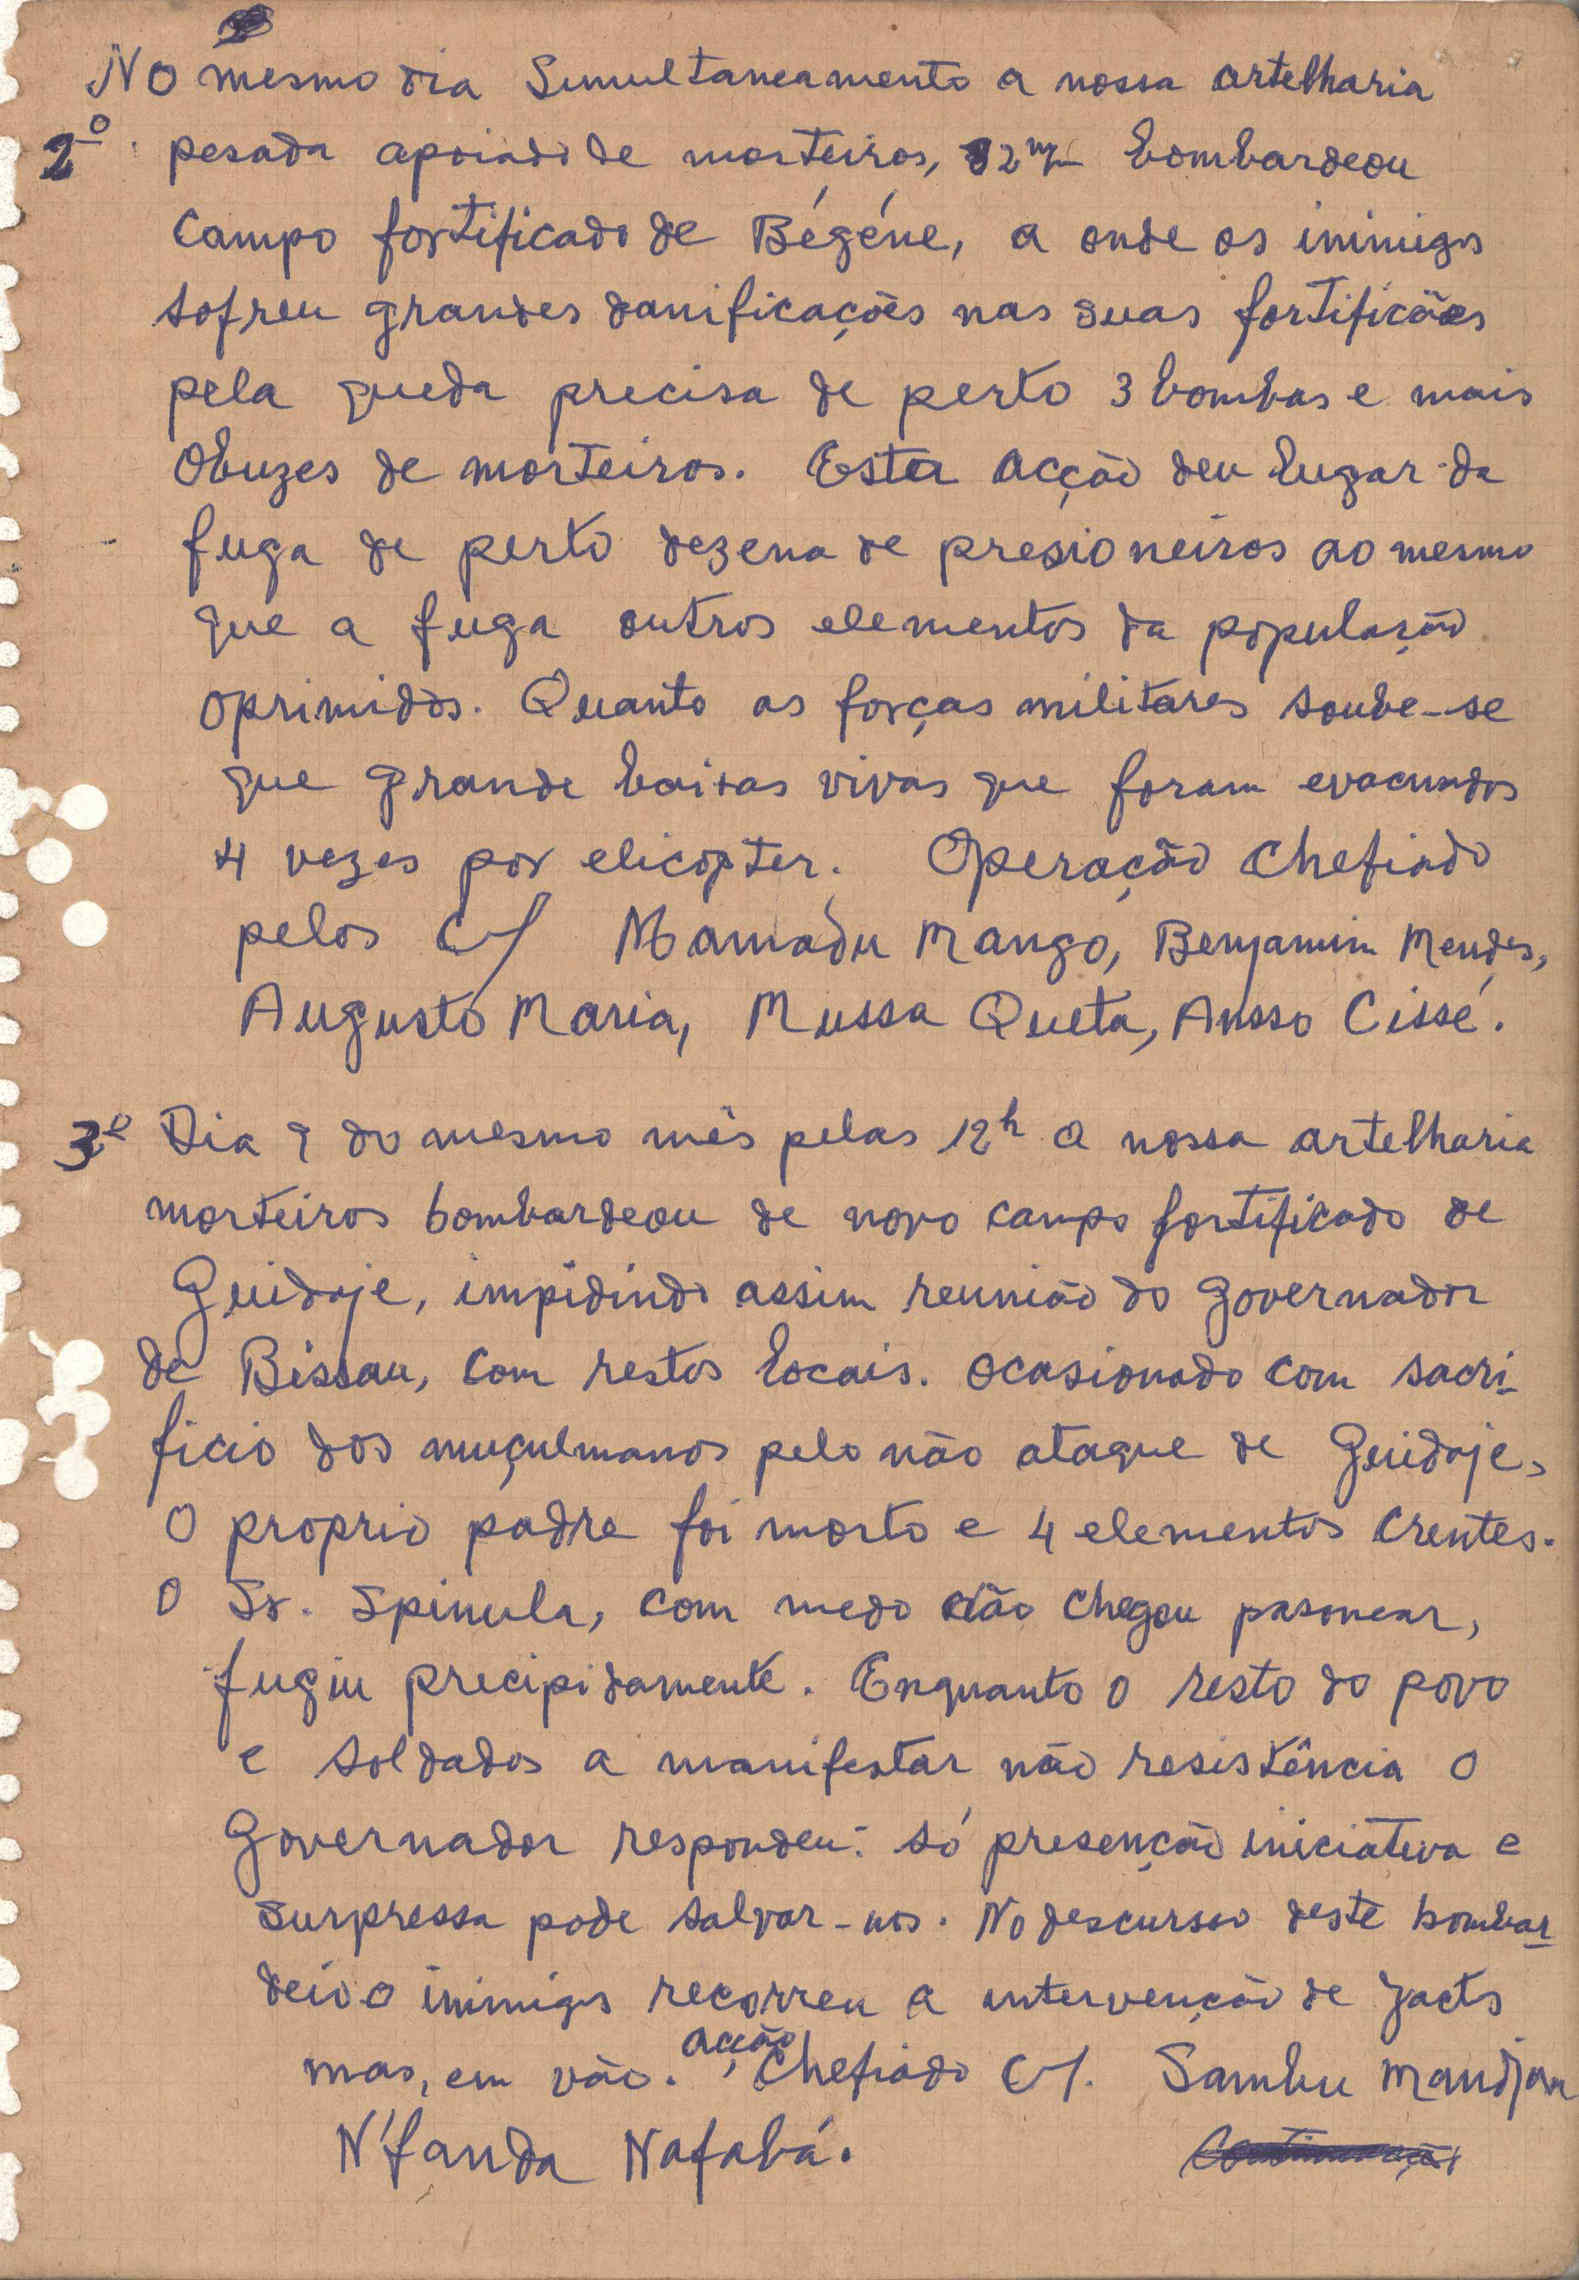 No mesmo dia Simultaneamento a nossa artelharia
2º. pesada apoiado de morteiros, 82 m/m bombardeou
Campo fortificado de Bégéne, a onde os inimigos
sofreu grandes danificações nas suas fortificões
pela queda precisa de perto 3 bombas e mais
Obuzes de morteiros. Esta acção deu lugar da
fuga de perto dezena de presioneiros ao mesmo
que a fuga outros elementos da população
oprimidos. Quanto as forças militares soube-se
que grande baixas vivas que foram evacuados
4 vezes por elicopter. Operação Chefiado
pelos C/ Mamadu Mango, Benjamim Mendes,
Augusto Maria, Mussa Queta, Ansso Cissé.
3º Dia 9 do mesmo mês pelas 12h a nossa artelharia
morteiros bombardeou de novo campo fortificado de
Guidaje, impidindo assim reunião do governador
de Bissau, com restos locais. ocasionado com sacri-
ficio dos muçulmanos pelo não ataque de Guidaje,
O proprio padre foi morto e 4 elementos Crentes.
O Sr. Spinula, com medo não chegou,
fugiu precipidamente. Enquanto o resto do povo
e soldados a manifestar não resistência o
Governador respondeu: só presenção iniciativa e
surpressa pode salvar-nos. No descurso deste bombar-
deio o inimigos recorreu a intervenção de jacts
mas, em vão. acção Chefiado C/. Sambu Mandjan
N'fanda Nafabá.